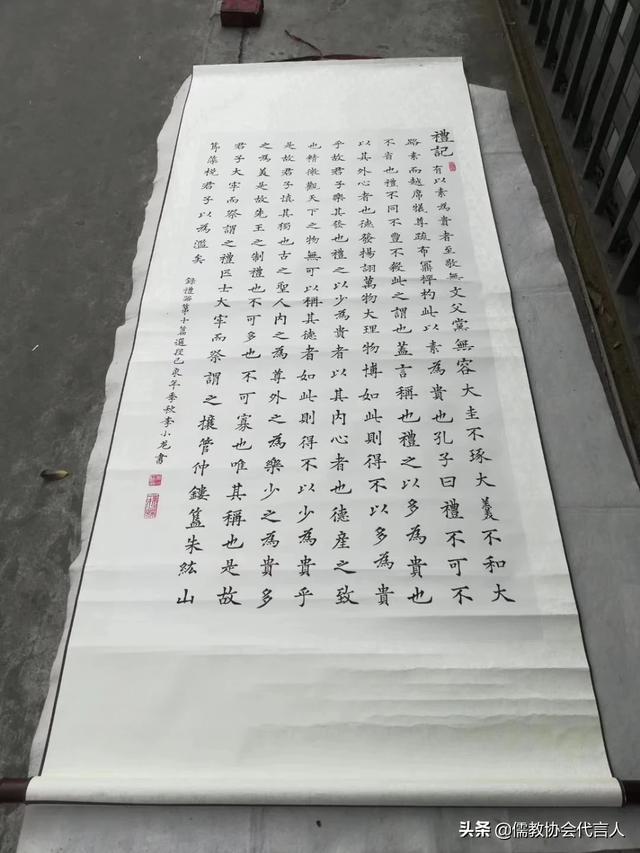 禮記 有以素為貴者至敬無文父黨無容大圭不琢大羹不和大
路素而越席犧尊疏布鼏樿杓此以素為貴也孔子曰禮不可不
不省也禮不同不豐不殺此之謂也蓋言稱也禮之以多為貴也
以其外心者也德發揚詡萬物大理物博如此則得不以多為貴
乎故君子樂其發也禮之以少為貴者以其内心者也德産之致
也精微觀天下之物無可以稱其德者如此則得不以少為貴乎
是故君子慎其獨也古之聖人内之為尊外之為樂少之為貴多
之為美是故先王之制禮也不可多也不可寡也唯其稱也是故
君子大牢而祭謂之禮匹士大牢而祭謂之攘管仲鏤簋朱紘山
節藻梲君子以為濫矣 錄禮器第十篇選段己亥年季秋李小龙書
头条 @儒教协会代言人